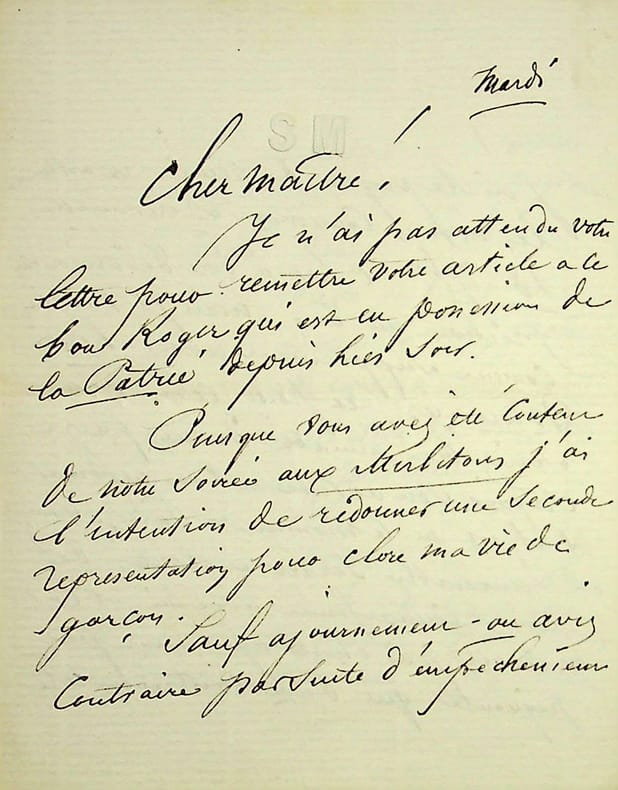 Mardi
SM
Cher maître !
Je n'ai pas attendu votre
lettre pour remettre votre article a ce
bon Roger qui est en possession de
la Patrie depuis hier soir.
Puisque vous avez été content
de notre soirée aux Mirlitons j'ai
l'intention de redonner une seconde
representation pour clore ma vie de
garçon.
Sauf ajournement ou avis
contraire par suite d'empechement